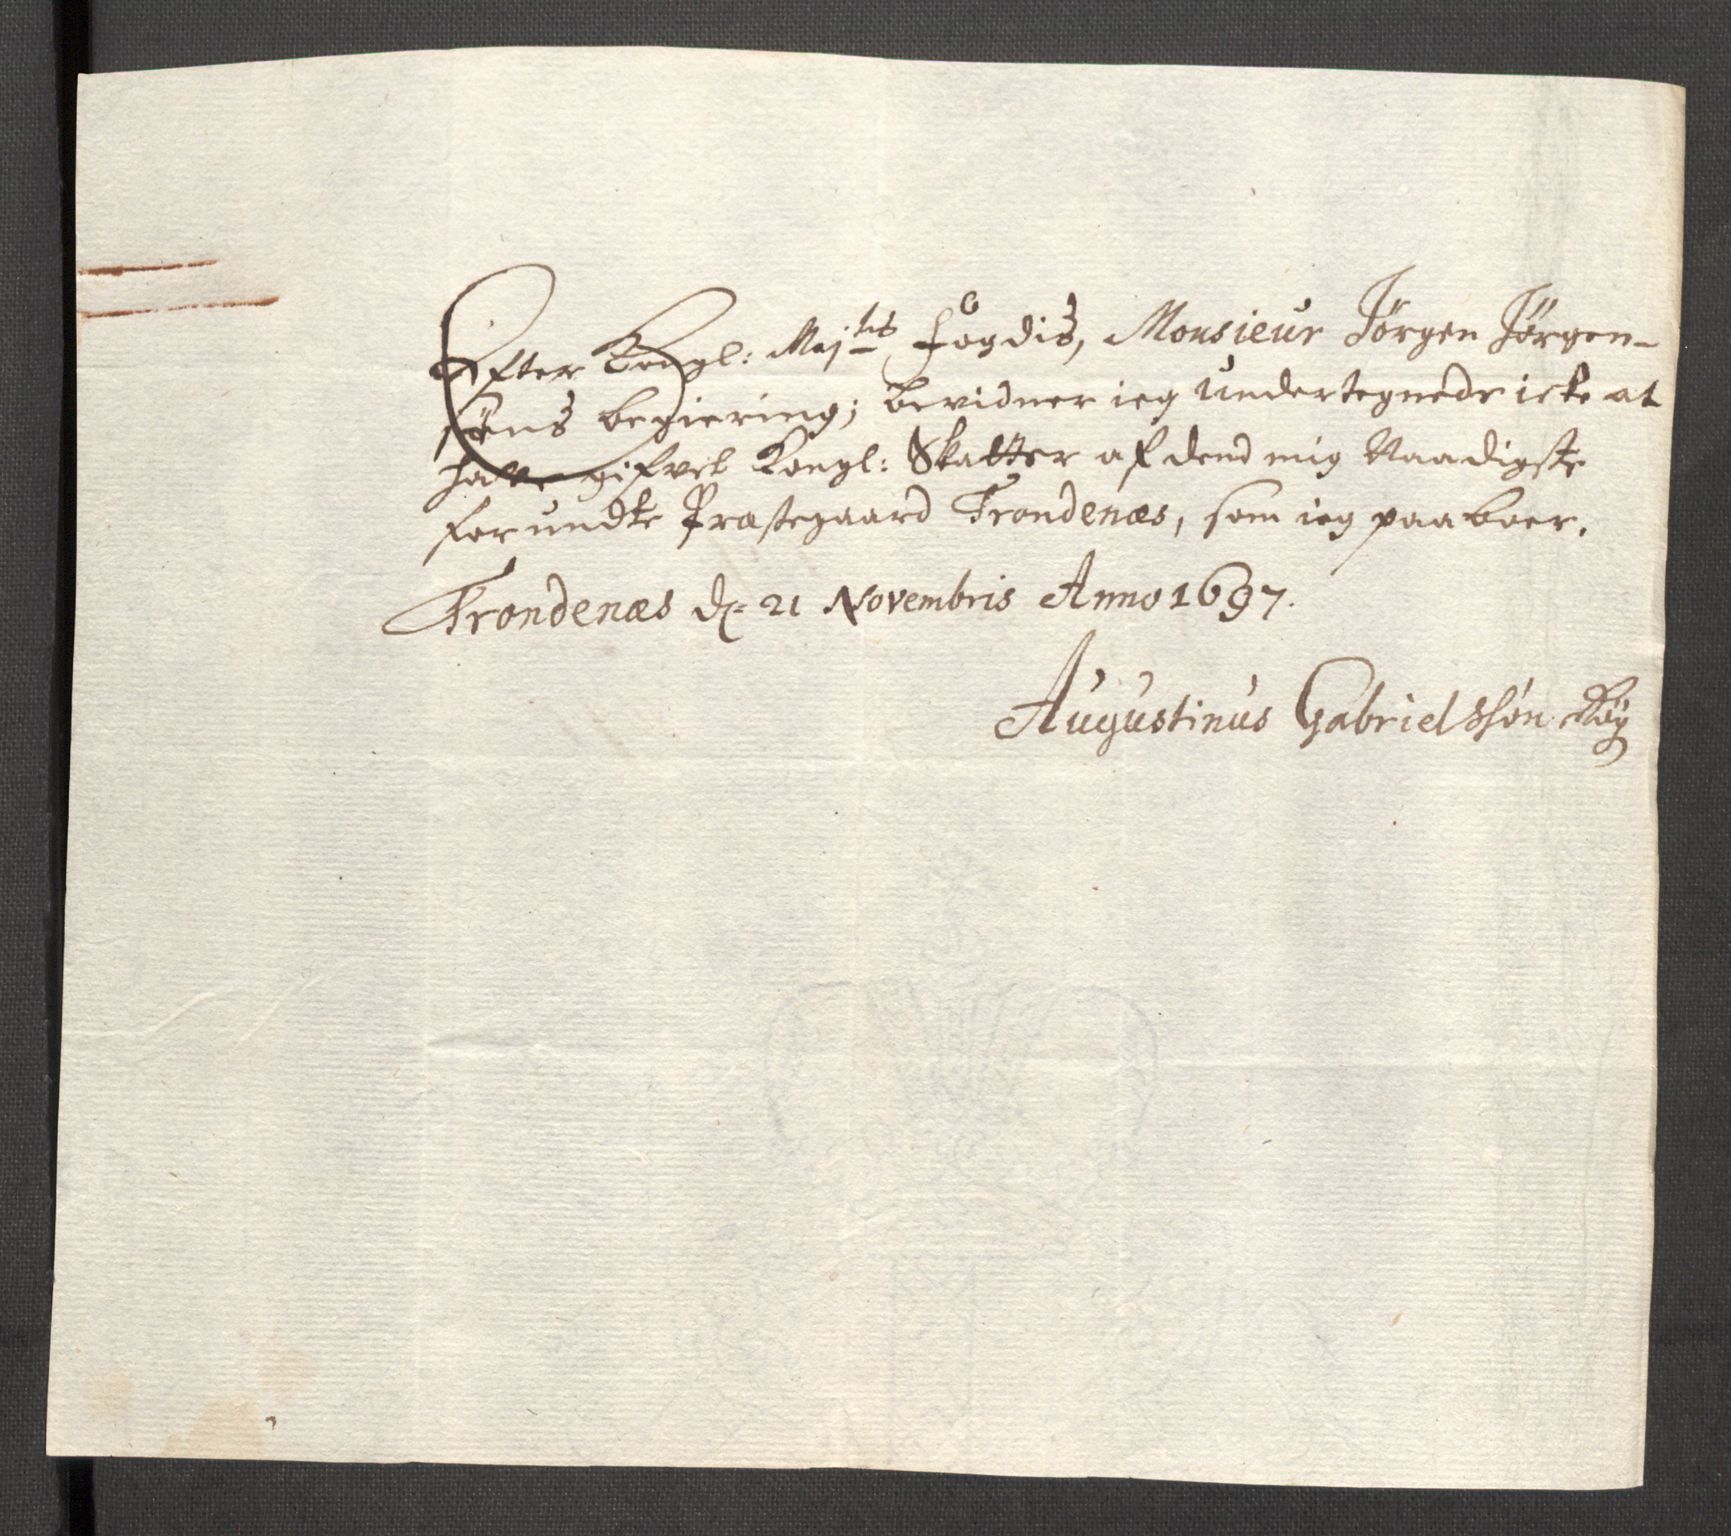 Efter Kongl: Maj:tes Fogdis, Monsieur Jørgen Jørgen-
søns begiering; bevidner ieg undertegnede icke at
have gifvet Kongl: Skatter af dend mig Naadigste
forundte Præstegaard Trondenæs, som ieg paaboer.
Trondenæs d: 21 Novembris Anno 1697.
Augustinus Gabrielssøn Røg